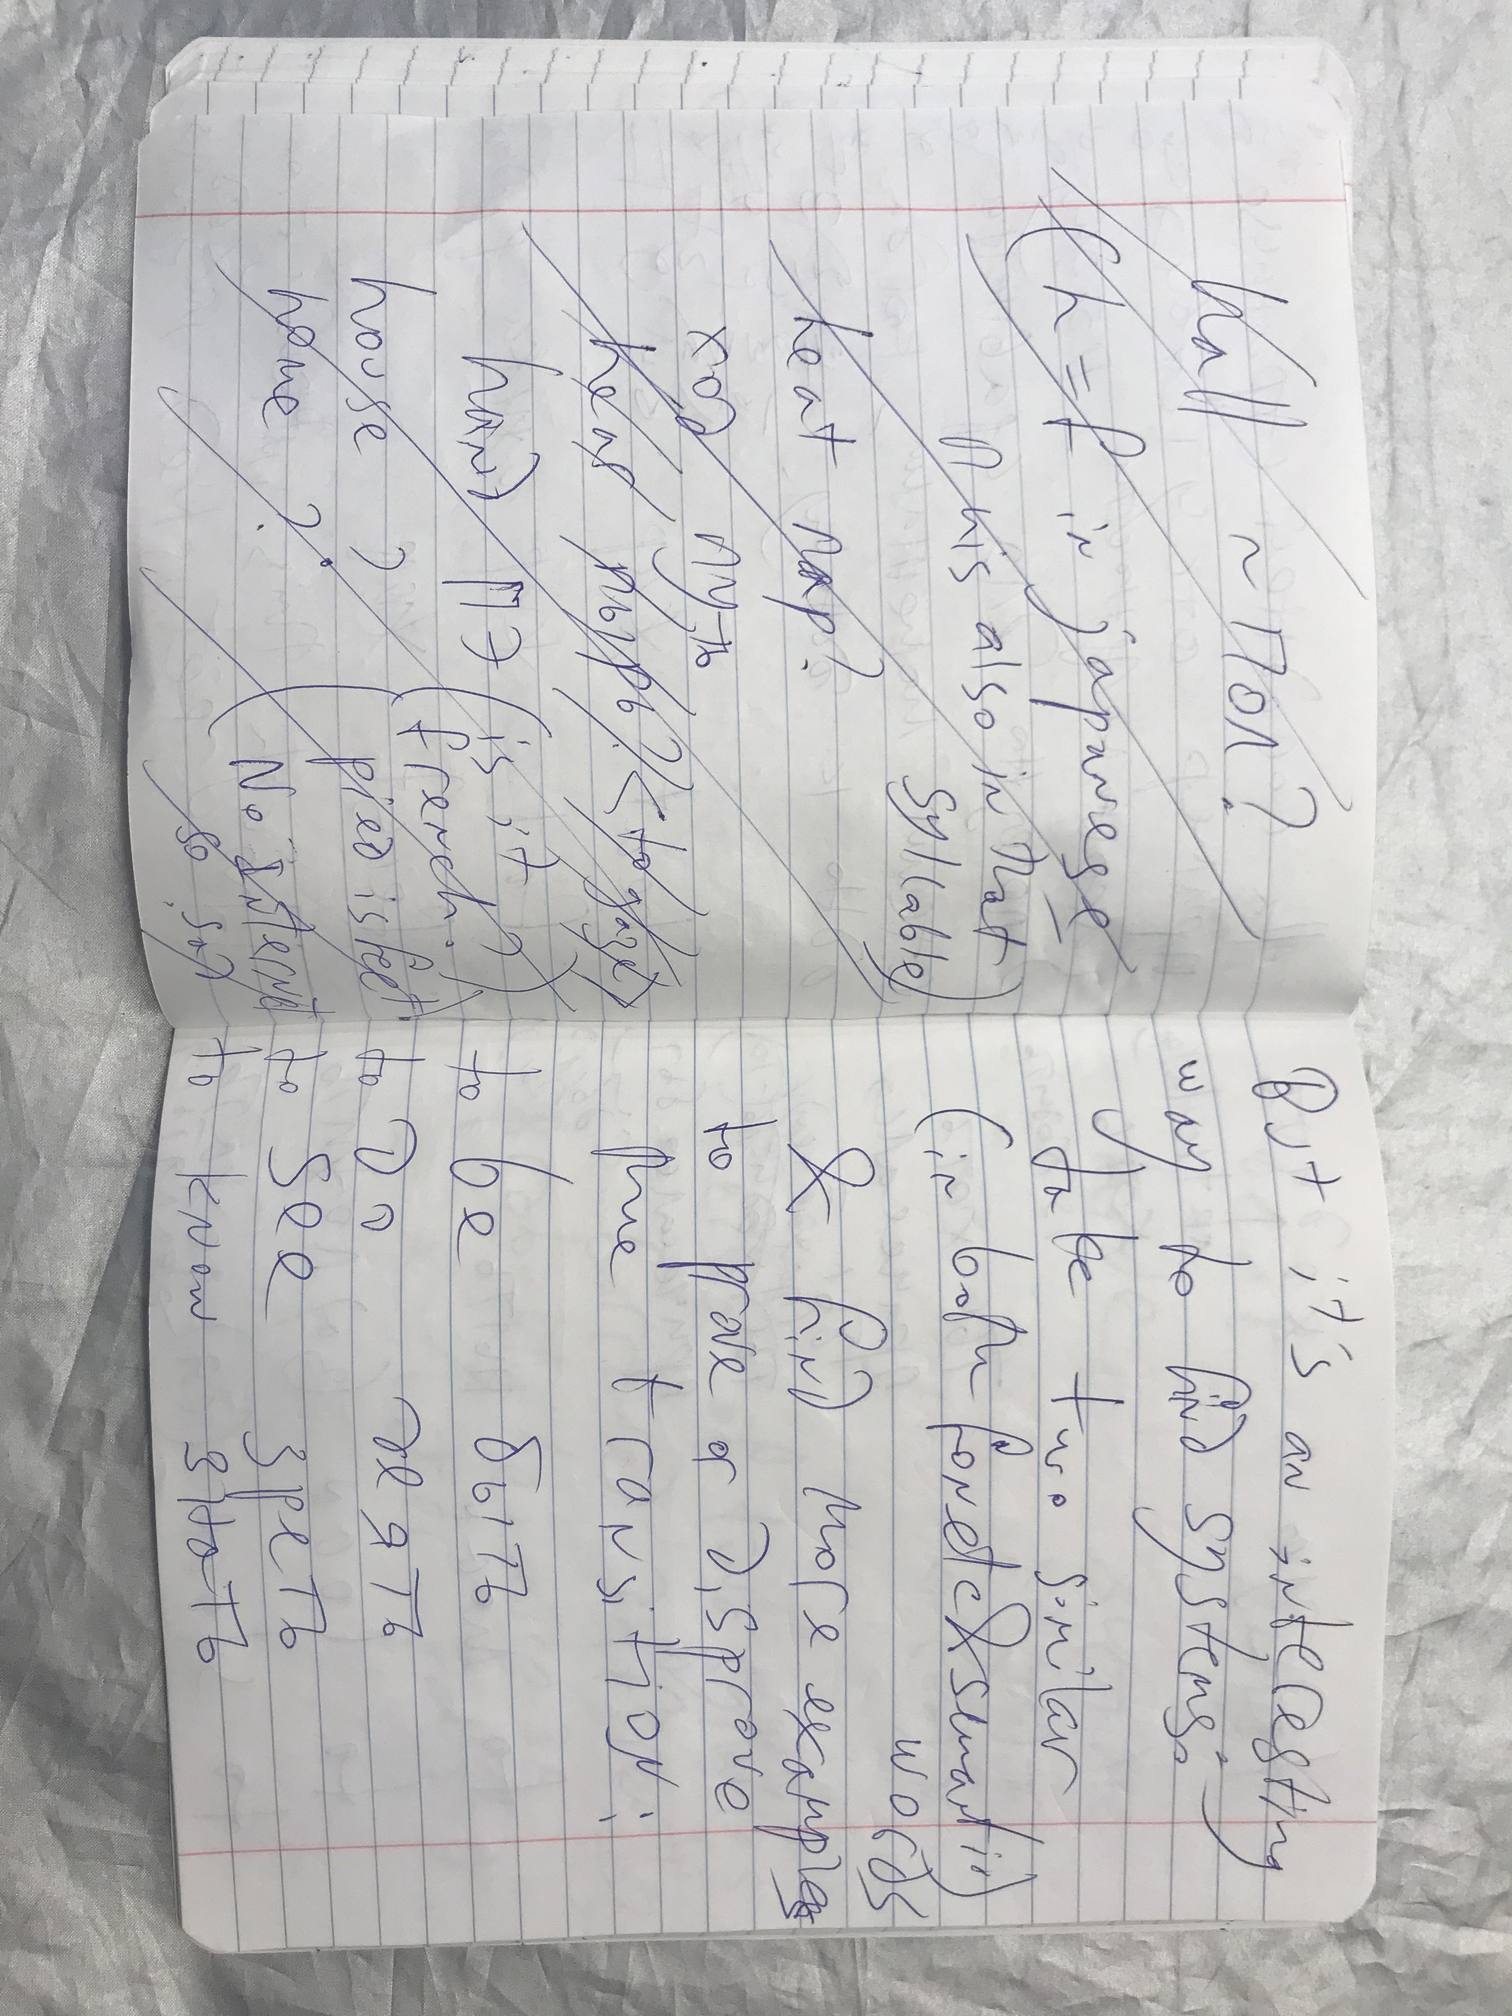 hall ~ пол?
(h = f in japanese
this also in that
syllable)
heat пар?
ход путь
hear
hand
house ?
home ?
(is it
french?)
(pied is feet)
(No internet
so so)
But it's an interesting
way to find systems:
take two similar
(in both fonetic & semantic)
words
& find more examples
to prove or disprove
the transition:
to be быть
to do деять
to see зреть
to know знать